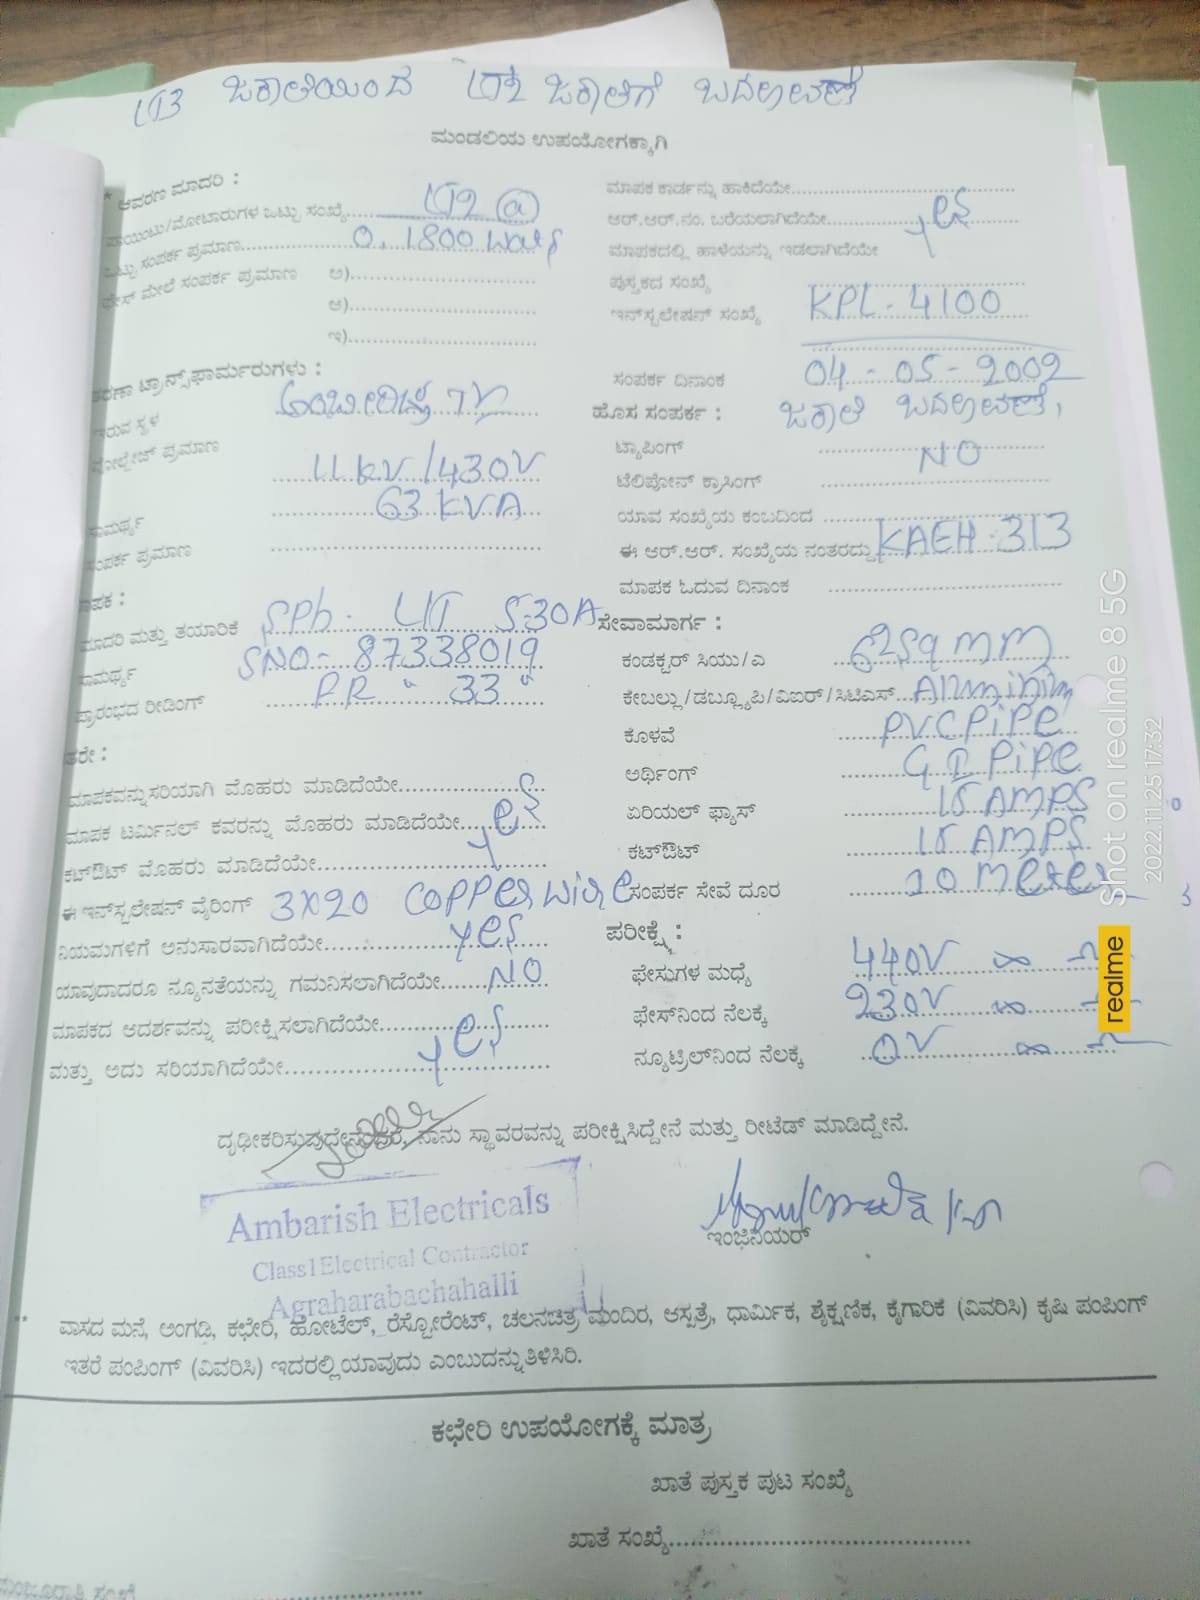 LT3 ಜಕಾತಿಯಿಂದ LT2 ಜಕಾತಿಗೆ ಬದಲಾವಣೆ
ಮಂಡಲಿಯ ಉಪಯೋಗಕ್ಕಾಗಿ
* ಆವರಣ ಮಾದರಿ :
ಪಾಯಿಂಟು/ಮೋಟಾರುಗಳ ಒಟ್ಟು ಸಂಖ್ಯೆ..... LT2 (a)
ಒಟ್ಟು ಸಂಪರ್ಕ ಪ್ರಮಾಣ..... 0.1800 Watts
ಫೇಸ್ ಮೇಲೆ ಸಂಪರ್ಕ ಪ್ರಮಾಣ ಅ).....
ಆ).....
ಇ).....
ಟ್ರಾನ್ಸ್‌ಫಾರ್ಮರುಗಳು :
ಇರುವ ಸ್ಥಳ
ವೋಲ್ಟೇಜ್ ಪ್ರಮಾಣ 11KV/430V
ಸಾಮರ್ಥ್ಯ 63 KVA
ಸಂಪರ್ಕ ಪ್ರಮಾಣ .....
ಮಾದರಿ ಮತ್ತು ತಯಾರಿಕೆ SPh. L&T 5-30A
ಸಾಮರ್ಥ್ಯ SNO- 87338019
ಪ್ರಾರಂಭದ ರೀಡಿಂಗ್ F.R "33"
ಮಾಪಕವನ್ನು ಸರಿಯಾಗಿ ಮೊಹರು ಮಾಡಿದೆಯೇ.....
ಮಾಪಕ ಟರ್ಮಿನಲ್ ಕವರನ್ನು ಮೊಹರು ಮಾಡಿದೆಯೇ..... yes
ಕಟ್‌ಔಟ್ ಮೊಹರು ಮಾಡಿದೆಯೇ.....
ಈ ಇನ್‌ಸ್ಟಲೇಷನ್ ವೈರಿಂಗ್ 3X20 COPPer wire
ನಿಯಮಗಳಿಗೆ ಅನುಸಾರವಾಗಿದೆಯೇ..... yes
ಯಾವುದಾದರೂ ನ್ಯೂನತೆಯನ್ನು ಗಮನಿಸಲಾಗಿದೆಯೇ..... NO
ಮಾಪಕದ ಆದರ್ಶವನ್ನು ಪರೀಕ್ಷಿಸಲಾಗಿದೆಯೇ..... yes
ಮತ್ತು ಅದು ಸರಿಯಾಗಿದೆಯೇ.....
ಮಾಪಕ ಕಾರ್ಡನ್ನು ಹಾಕಿದೆಯೇ.....
ಆರ್.ಆರ್.ನಂ. ಬರೆಯಲಾಗಿದೆಯೇ..... yes
ಮಾಪಕದಲ್ಲಿ ಹಾಳೆಯನ್ನು ಇಡಲಾಗಿದೆಯೇ
ಪುಸ್ತಕದ ಸಂಖ್ಯೆ .....
ಇನ್‌ಸ್ಟಲೇಷನ್ ಸಂಖ್ಯೆ KPL-4100
ಸಂಪರ್ಕ ದಿನಾಂಕ 04-05-2002
ಹೊಸ ಸಂಪರ್ಕ : ಜಕಾತಿ ಬದಲಾವಣೆ,
ಟ್ಯಾಪಿಂಗ್ .....
ಟೆಲಿಪೋನ್ ಕ್ರಾಸಿಂಗ್ NO
ಯಾವ ಸಂಖ್ಯೆಯ ಕಂಬದಿಂದ .....
ಈ ಆರ್.ಆರ್. ಸಂಖ್ಯೆಯ ನಂತರದ್ದು KAEH-313
ಮಾಪಕ ಓದುವ ದಿನಾಂಕ .....
ಸೇವಾಮಾರ್ಗ :
ಕಂಡಕ್ಟರ್ ಸಿಯು/ಎ 62sq mm
ಕೇಬಲ್ಲು/ಡಬ್ಲ್ಯೂಪಿ/ವಿಐರ್/ಸಿಟಿಎಸ್... Aluminim
ಕೊಳವೆ PVC PiPe
ಅರ್ಥಿಂಗ್ G I PiPe
ಏರಿಯಲ್ ಫ್ಯಾಸ್ 15 AMPS
ಕಟ್‌ಔಟ್ 15 AMPS
ಸಂಪರ್ಕ ಸೇವೆ ದೂರ 10 meter
ಪರೀಕ್ಷೆ :
ಫೇಸುಗಳ ಮಧ್ಯೆ 440V
ಫೇಸ್‌ನಿಂದ ನೆಲಕ್ಕೆ 230V
ನ್ಯೂಟ್ರಿಲ್‌ನಿಂದ ನೆಲಕ್ಕೆ 0V
ದೃಢೀಕರಿಸುವುದೇನೆಂದರೆ, ನಾನು ಸ್ಥಾವರವನ್ನು ಪರೀಕ್ಷಿಸಿದ್ದೇನೆ ಮತ್ತು ರೀಟೆಡ್ ಮಾಡಿದ್ದೇನೆ.
Ambarish Electricals
Class1 Electrical Contractor
Agraharabachahalli
ಇಂಜಿನಿಯರ್
** ವಾಸದ ಮನೆ, ಅಂಗಡಿ, ಕಛೇರಿ, ಹೋಟೆಲ್, ರೆಸ್ಟೋರೆಂಟ್, ಚಲನಚಿತ್ರ ಮಂದಿರ, ಆಸ್ಪತ್ರೆ, ಧಾರ್ಮಿಕ, ಶೈಕ್ಷಣಿಕ, ಕೈಗಾರಿಕೆ (ವಿವರಿಸಿ) ಕೃಷಿ ಪಂಪಿಂಗ್
ಇತರೆ ಪಂಪಿಂಗ್ (ವಿವರಿಸಿ) ಇದರಲ್ಲಿ ಯಾವುದು ಎಂಬುದನ್ನು ತಿಳಿಸಿರಿ.
ಕಛೇರಿ ಉಪಯೋಗಕ್ಕೆ ಮಾತ್ರ
ಖಾತೆ ಪುಸ್ತಕ ಪುಟ ಸಂಖ್ಯೆ
ಖಾತೆ ಸಂಖ್ಯೆ.....
realme
Shot on realme 8 5G
2022.11.25 17:32